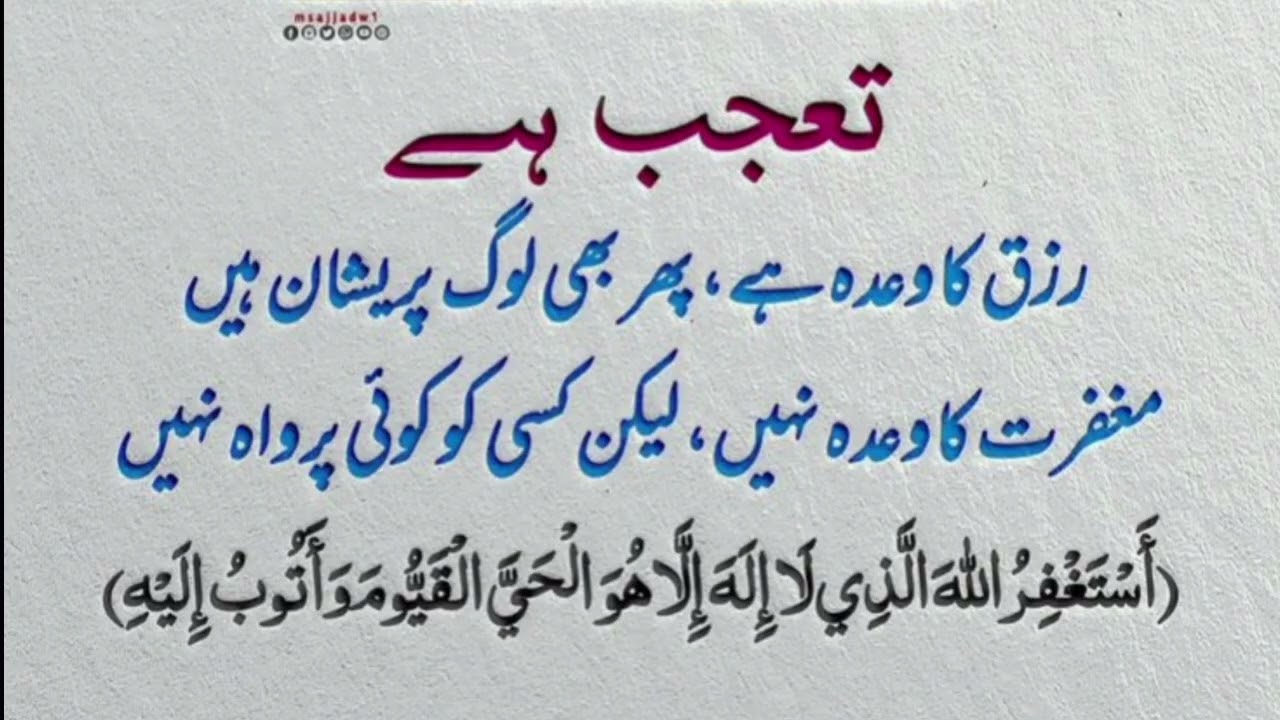 msajjadw1
تعجب ہے
رزق کا وعدہ ہے، پھر بھی لوگ پریشان ہیں
مغفرت کا وعدہ نہیں، لیکن کسی کو کوئی پرواہ نہیں
(أَسْتَغْفِرُ اللهَ الَّذِي لَا إِلَهَ إِلَّا هُوَ الْحَيَّ الْقَيُّومَ وَأَتُوبُ إِلَيْهِ)